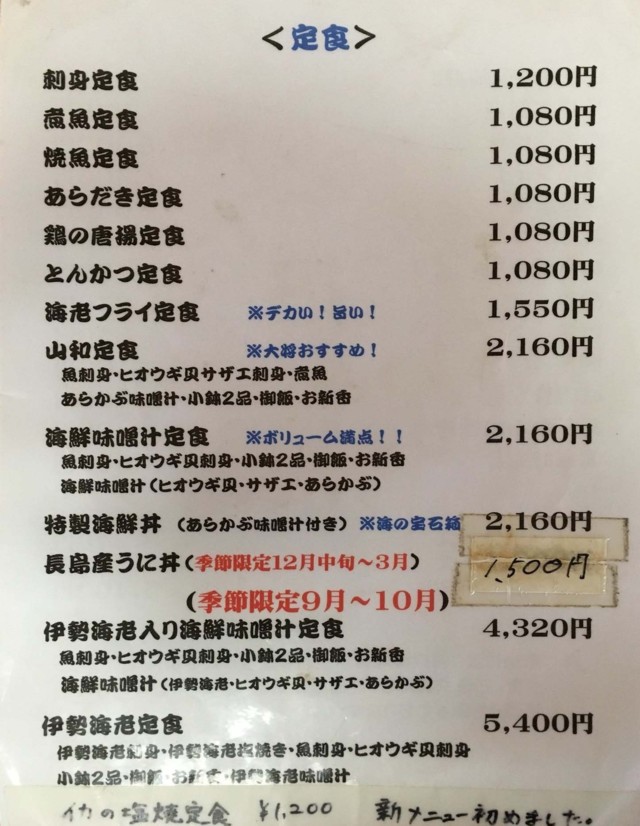 ＜定食＞
刺身定食 1,200円
煮魚定食 1,080円
焼魚定食 1,080円
あらだき定食 1,080円
鶏の唐揚定食 1,080円
とんかつ定食 1,080円
海老フライ定食 ※デカい！旨い！ 1,550円
山和定食 ※大将おすすめ！ 2,160円
魚刺身・ヒオウギ貝サザエ刺身・煮魚
あらかぶ味噌汁・小鉢2品・御飯・お新香
海鮮味噌汁定食 ※ボリューム満点！！ 2,160円
魚刺身・ヒオウギ貝刺身・小鉢2品・御飯・お新香
海鮮味噌汁（ヒオウギ貝・サザエ・あらかぶ）
特製海鮮丼（あらかぶ味噌汁付き）※海の宝石箱 2,160円
長島産うに丼（季節限定12月中旬～3月） 1,500円
（季節限定9月～10月）
伊勢海老入り海鮮味噌汁定食 4,320円
魚刺身・ヒオウギ貝刺身・小鉢2品・御飯・お新香
海鮮味噌汁（伊勢海老・ヒオウギ貝・サザエ・あらかぶ）
伊勢海老定食 5,400円
伊勢海老刺身・伊勢海老塩焼き・魚刺身・ヒオウギ貝刺身
小鉢2品・御飯・お新香・伊勢海老味噌汁
イカの塩焼定食 ¥1,200 新メニュー初めました。